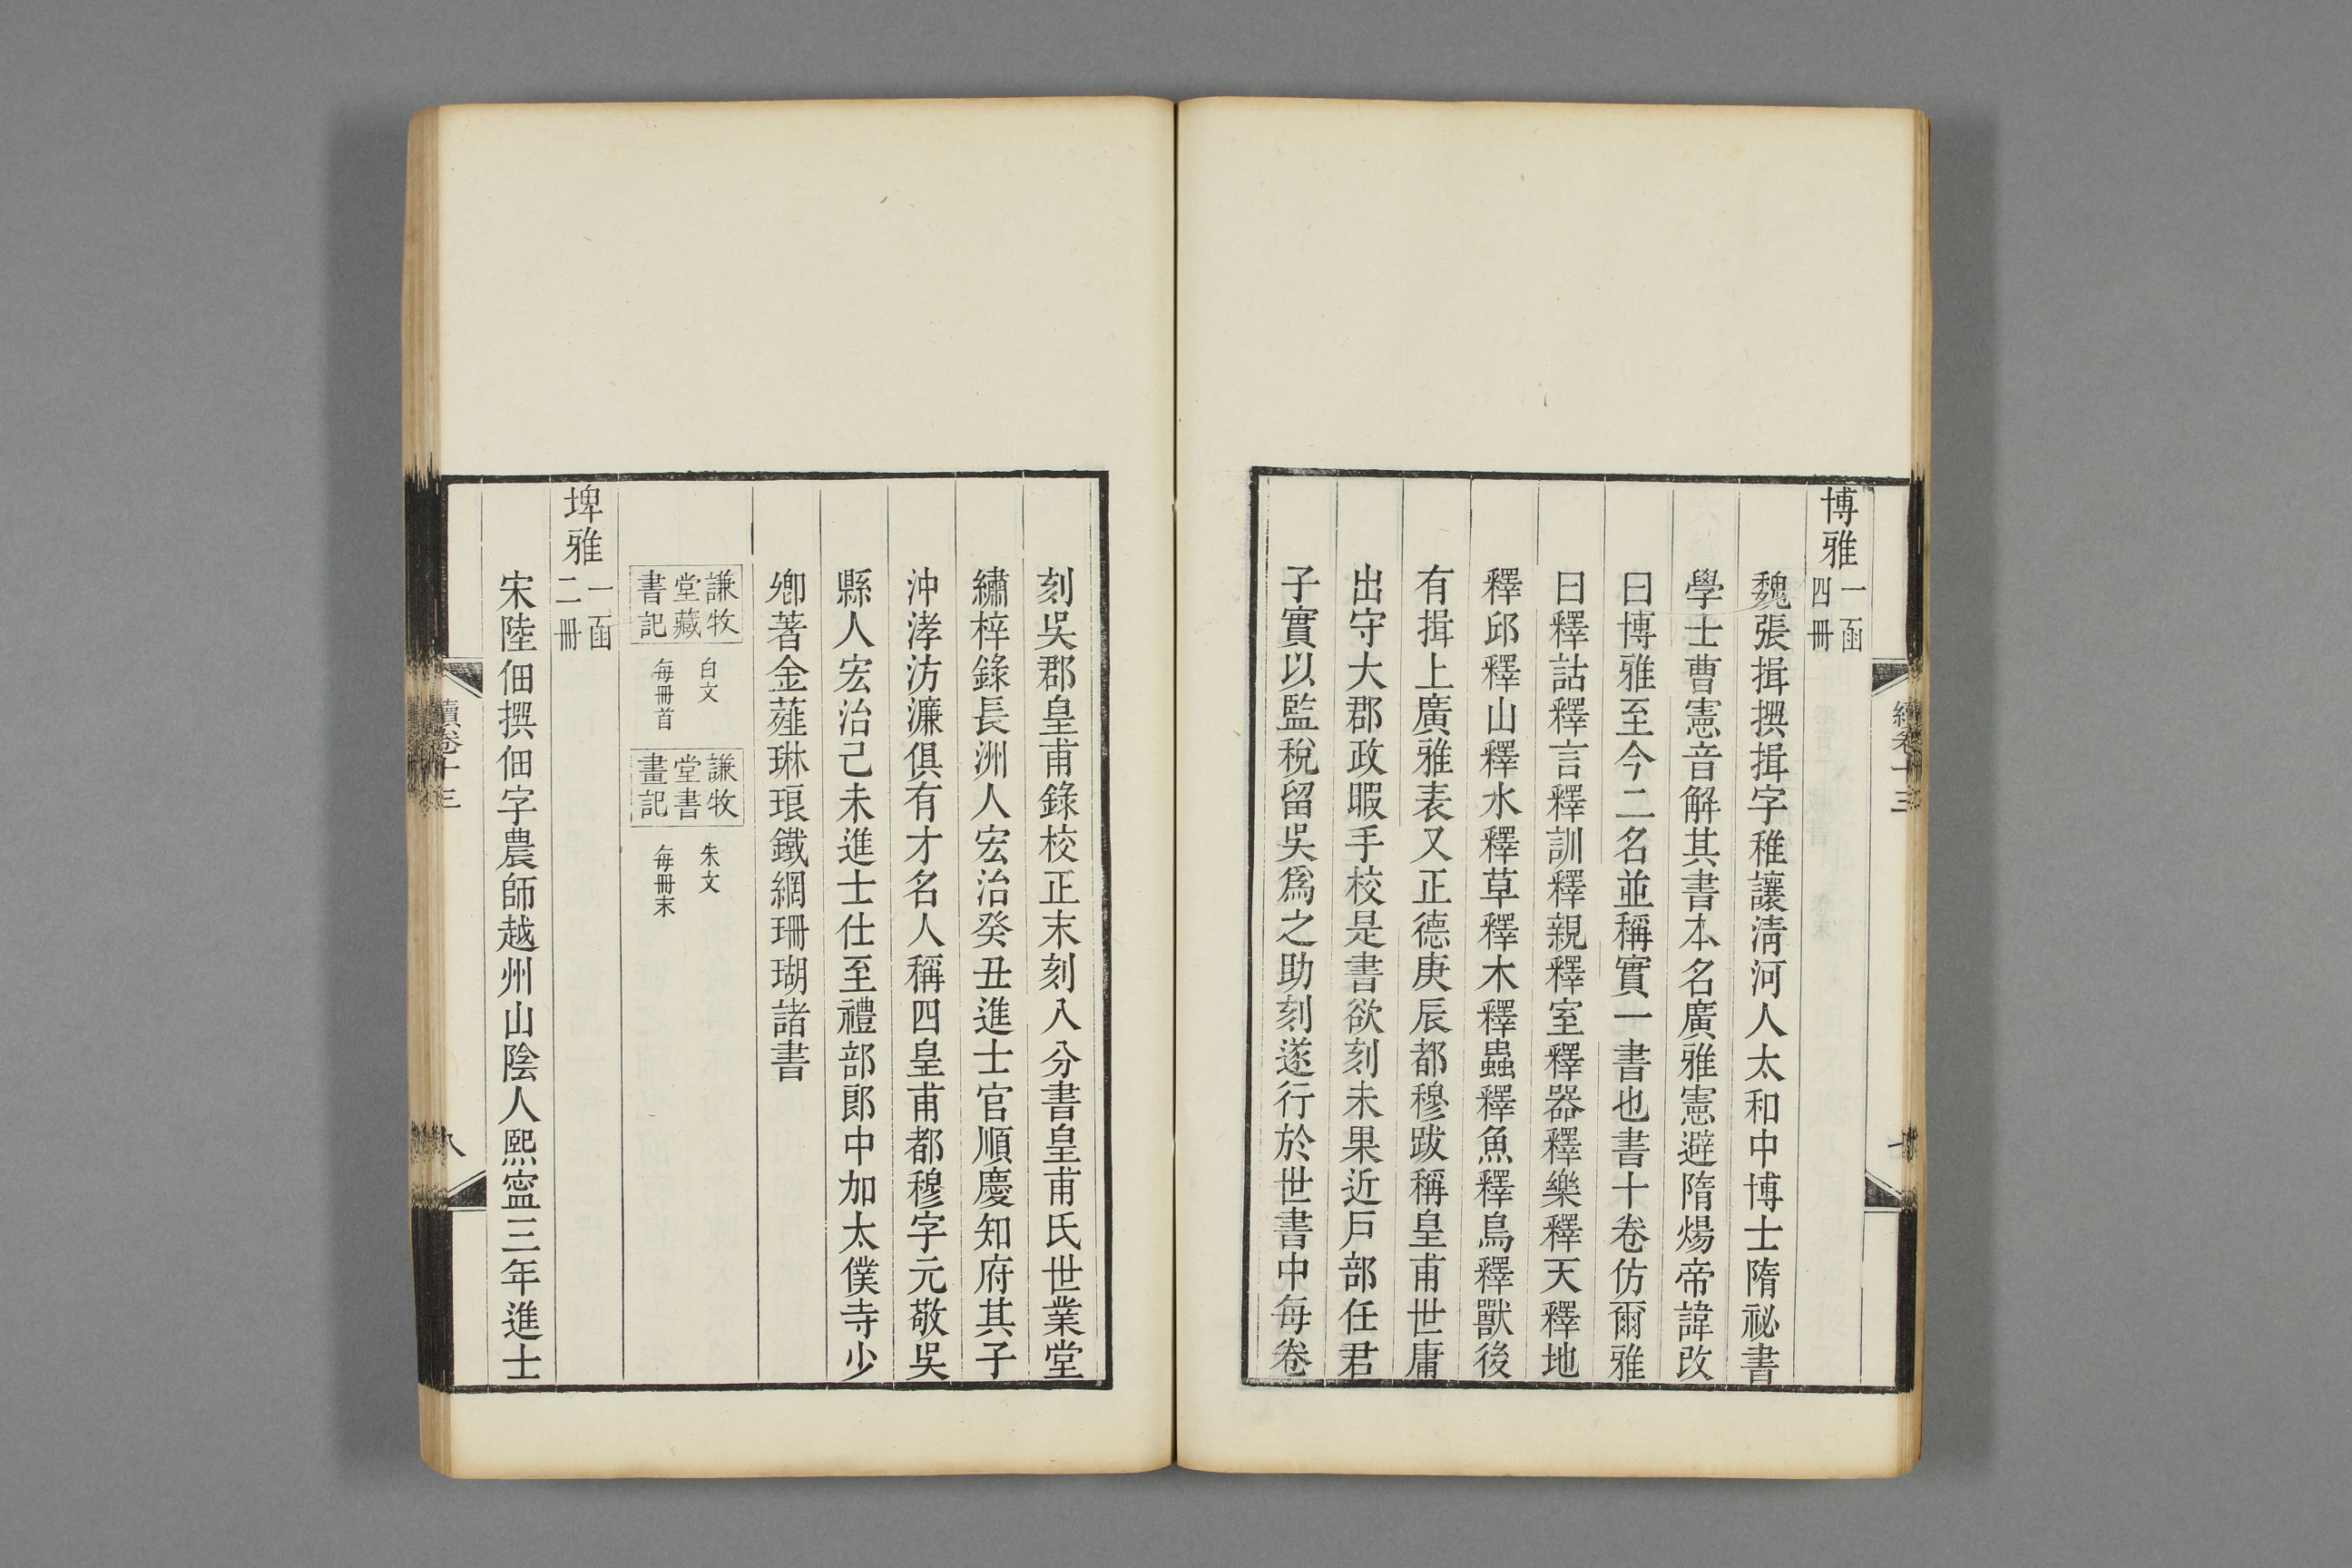 博雅 一函四冊
魏張揖撰揖字稚讓淸河人太和中博士隋祕書
學士曹憲音解其書本名廣雅憲避隋煬帝諱改
曰博雅至今二名並稱實一書也書十卷仿爾雅
曰釋詁釋言釋訓釋親釋室釋器釋樂釋天釋地
釋邱釋山釋水釋草釋木釋蟲釋魚釋鳥釋獸後
有揖上廣雅表又正德庚辰都穆跋稱皇甫世庸
出守大郡政暇手校是書欲刻未果近戶部任君
子實以監稅留吳爲之助刻遂行於世書中每卷
刻吳郡皇甫錄校正末刻八分書皇甫氏世業堂
繡梓錄長洲人宏治癸丑進士官順慶知府其子
沖涍汸濂俱有才名人稱四皇甫都穆字元敬吳
縣人宏治己未進士仕至禮部郎中加太僕寺少
卿著金薤琳琅鐵綱珊瑚諸書
謙牧堂藏書記 白文每冊首 謙牧堂書畫記 朱文每冊末
埤雅 一函二冊
宋陸佃撰佃字農師越州山陰人熙寍三年進士
續卷十三
八